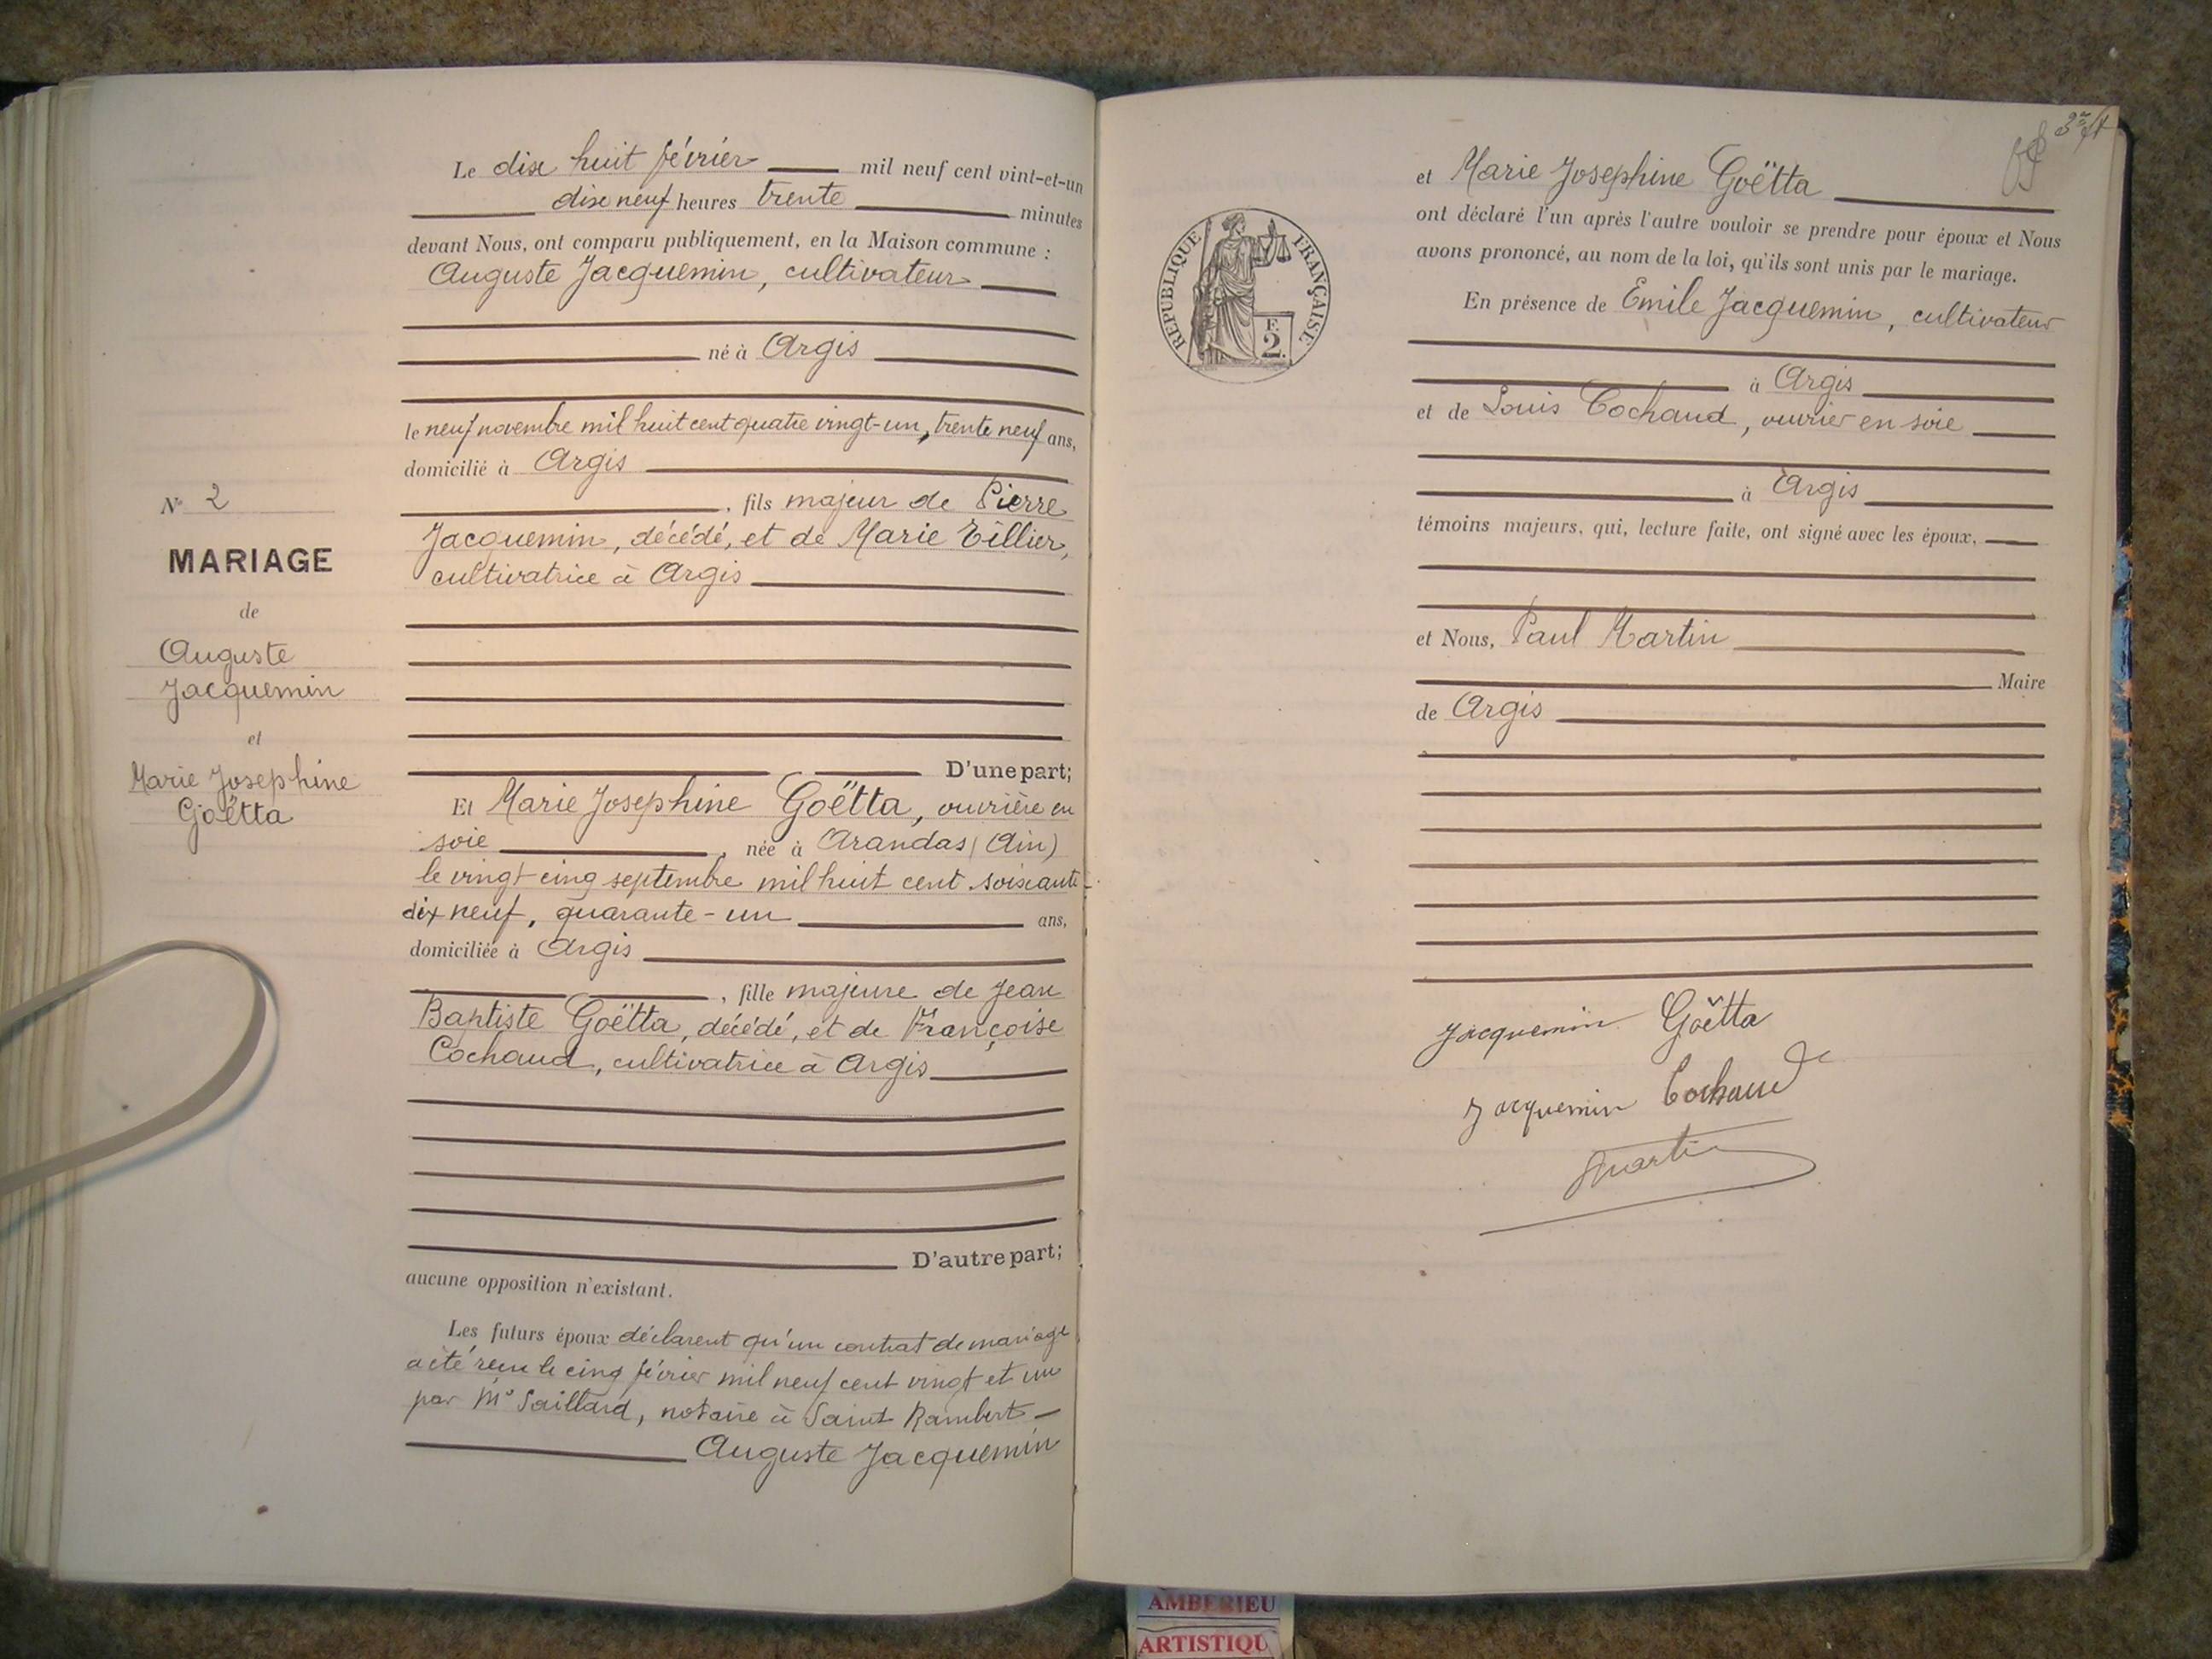 Le dix huit février mil neuf cent vint-et-un
dix neuf heures trente minutes
devant Nous, ont comparu publiquement, en la Maison commune :
Auguste Jacquemin, cultivateur
né à Argis
le neuf novembre mil huit cent quatre vingt-un, trente neuf ans,
domicilié à Argis
, fils majeur de Pierre
Jacquemin, décédé, et de Marie Tillier,
cultivatrice à Argis
D'une part;
Et Marie Josephine Goëtta, ouvrière en
soie, née à Arandas (Ain)
le vingt cinq septembre mil huit cent soixante-
dix neuf, quarante-un ans,
domiciliée à Argis
, fille majeure de Jean
Baptiste Goëtta, décédé, et de Françoise
Cochaud, cultivatrice à Argis
D'autre part;
aucune opposition n'existant.
Les futurs époux déclarent qu'un contrat de mariage
a été reçu le cinq février mil neuf cent vingt et un
par Me Saillard, notaire à Saint Rambert
Auguste Jacquemin
N° 2
MARIAGE
de
Auguste
Jacquemin
et
Marie Josephine
Goëtta
RÉPUBLIQUE FRANÇAISE
F.
2.
et Marie Josephine Goëtta
ont déclaré l'un après l'autre vouloir se prendre pour époux et Nous
avons prononcé, au nom de la loi, qu'ils sont unis par le mariage.
En présence de Emile Jacquemin, cultivateur
à Argis
et de Louis Cochaud, ouvrier en soie
à Argis
témoins majeurs, qui, lecture faite, ont signé avec les époux,
et Nous, Paul Martin
Maire
de Argis
Jacquemin Goëtta
Jacquemin Cochaud
Martin
AMBERIEU
ARTISTIQU